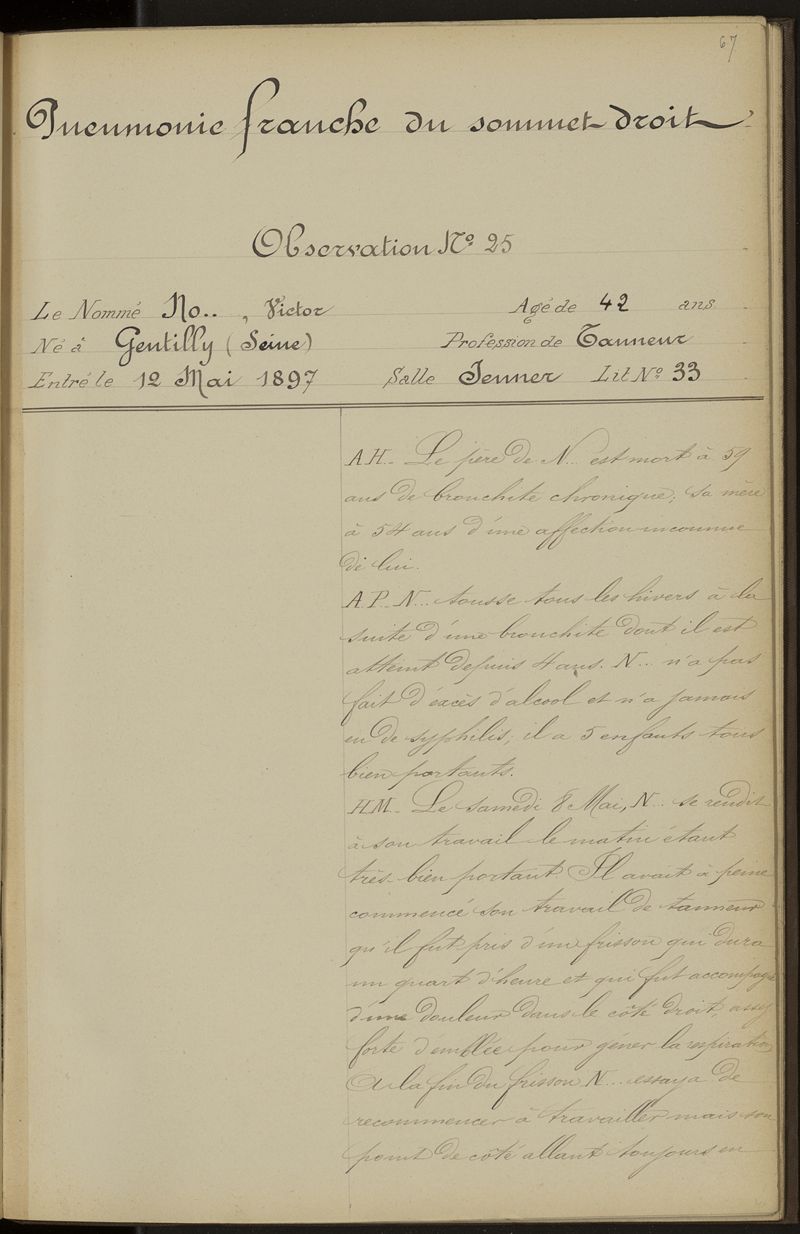 67
Pneumonie franche du sommet droit
Observation No 25
Le Nommé No.. , Victor Agé de 42 ans
Né à Gentilly (Seine) Profession de Tanneur
Entré le 12 Mai 1897 Salle Jenner Lit No 33
A.H_ Le père de N... est mort à 59
ans de bronchite chronique; sa mère
à 54 ans d'une affection inconnue
de lui.
A.P_ N... tousse tous les hivers à la
suite d'une bronchite dont il est
atteint depuis 4 ans. N... n'a pas
fait d'excès d'alcool et n'a jamais
eu de syphilis; il a 5 enfants tous
bien portants.
H.M_ Le samedi 8 Mai, N... se rendit
à son travail le matin étant
très bien portant Il avait à peine
commencé son travail de tanneur
qu'il fut pris d'un frisson qui dura
un quart d'heure et qui fut accompagné
d'une douleur dans le côté droit, assez
forte d'emblée pour géner la respiration
A la fin du frisson N... essaya de
recommencer à travailler mais son
point de côté allant toujours en